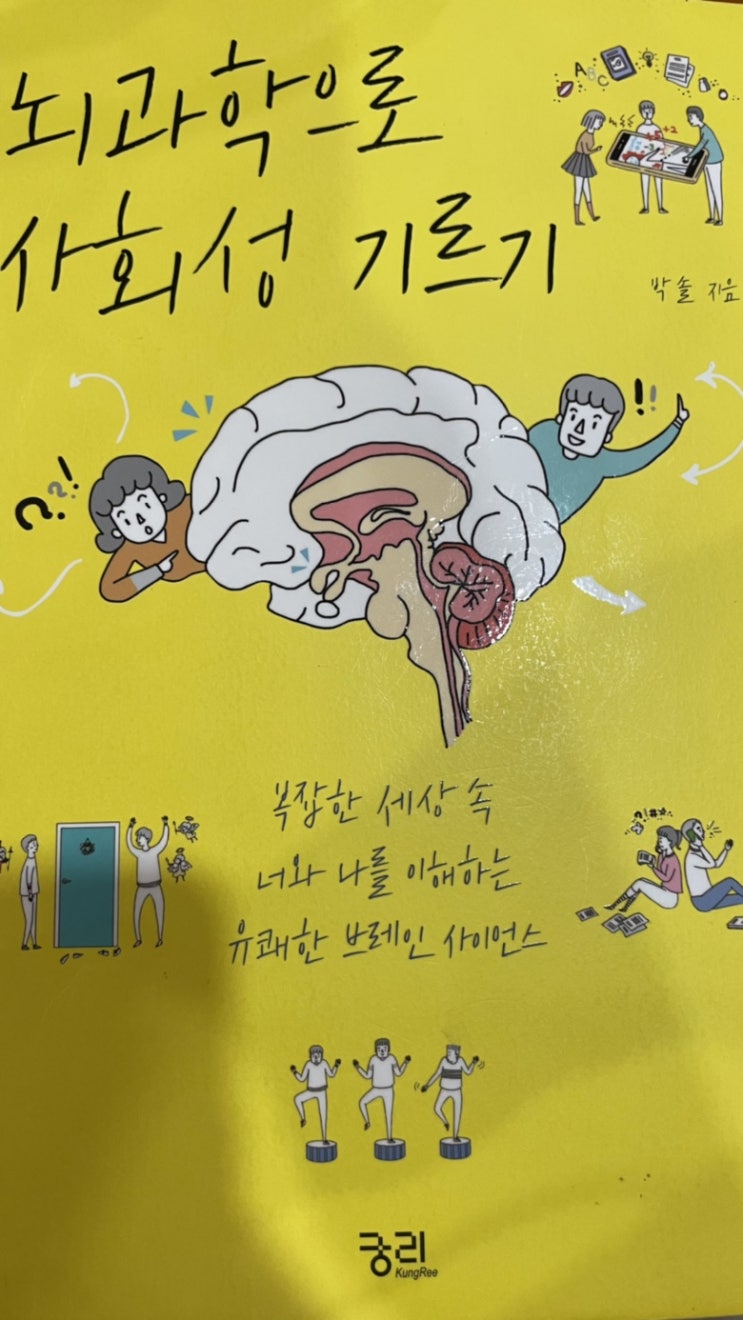 뇌과학으로
사회성 기르기
ABC
+2
박솔 지음
?²?!
!!
복잡한 세상 속
너와 나를 이해하는
유쾌한 브레인 사이언스
?!#※
궁리
KungRee